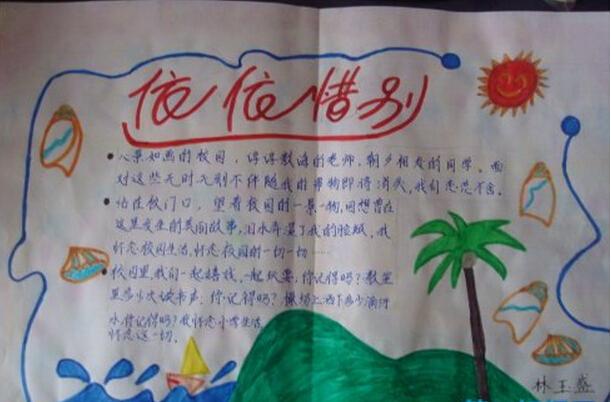 依依惜别
八景如画的校园，谆谆教诲的老师，朝夕相处的同学。面
对这些无时无刻不伴随我的事物即将消失，我们恋恋不舍。
站在校门口，望着校园的一景一物，回想曾在
这里发生的共同故事，泪水弄湿了我的脸蛋。我
怀恋校园生活，怀恋校园的一切一切……
校园里我们一起嬉戏，一起玩耍；你记得吗？教室
里多少次读书声；你记得吗？操场上洒下多少滴汗
水你记得吗？我怀恋小学生活
怀恋这一切。
林玉盛